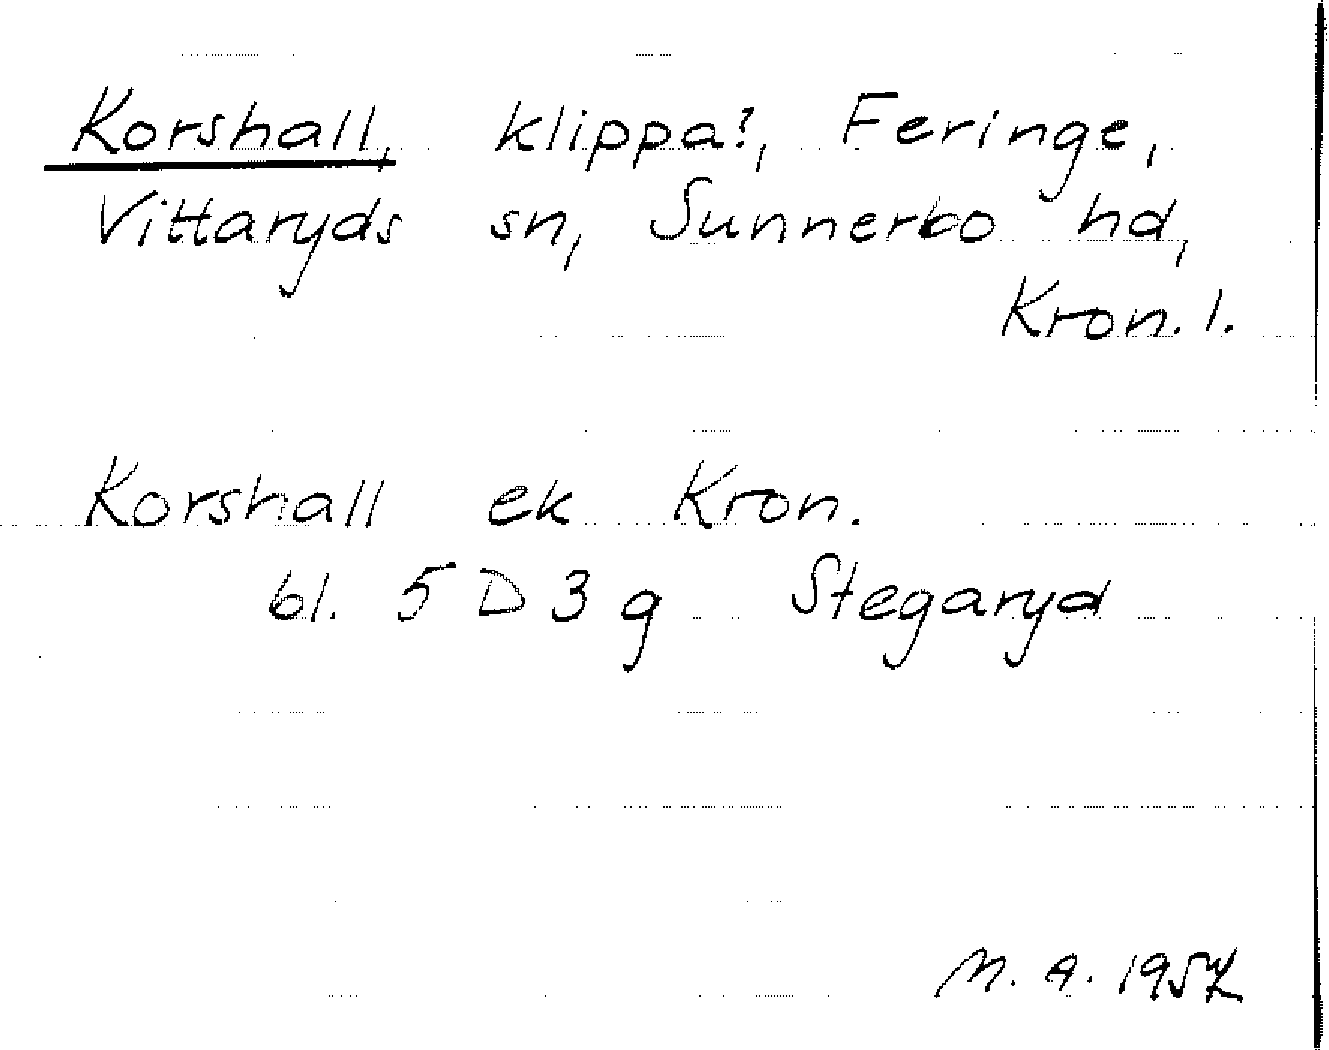 Korshall, klippa?, Feringe,
Vittaryds sn, Sunnerbo hd,
Kron. l.
Korshall ek Kron.
bl. 5 D 3 g Stegaryd
M. A. 1957